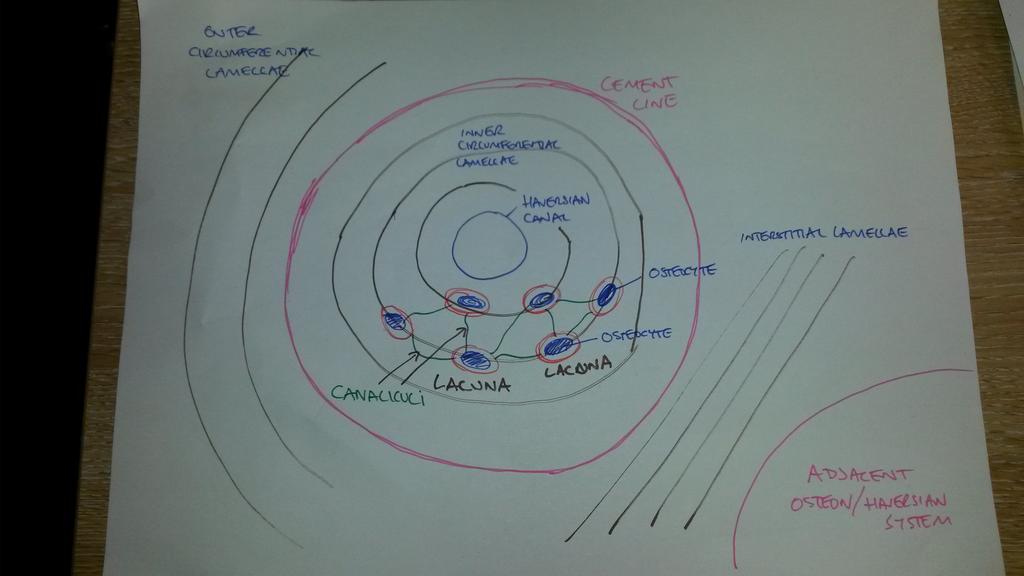 OUTER
CIRCUMFERENTIAL
LAMELLAE
CEMENT
LINE
INNER
CIRCUMFERENTIAL
LAMELLAE
HAVERSIAN
CANAL
INTERSTITIAL LAMELLAE
OSTEOCYTE
OSTEOCYTE
LACUNA
LACUNA
CANALICULI
ADJACENT
OSTEON/HAVERSIAN
SYSTEM